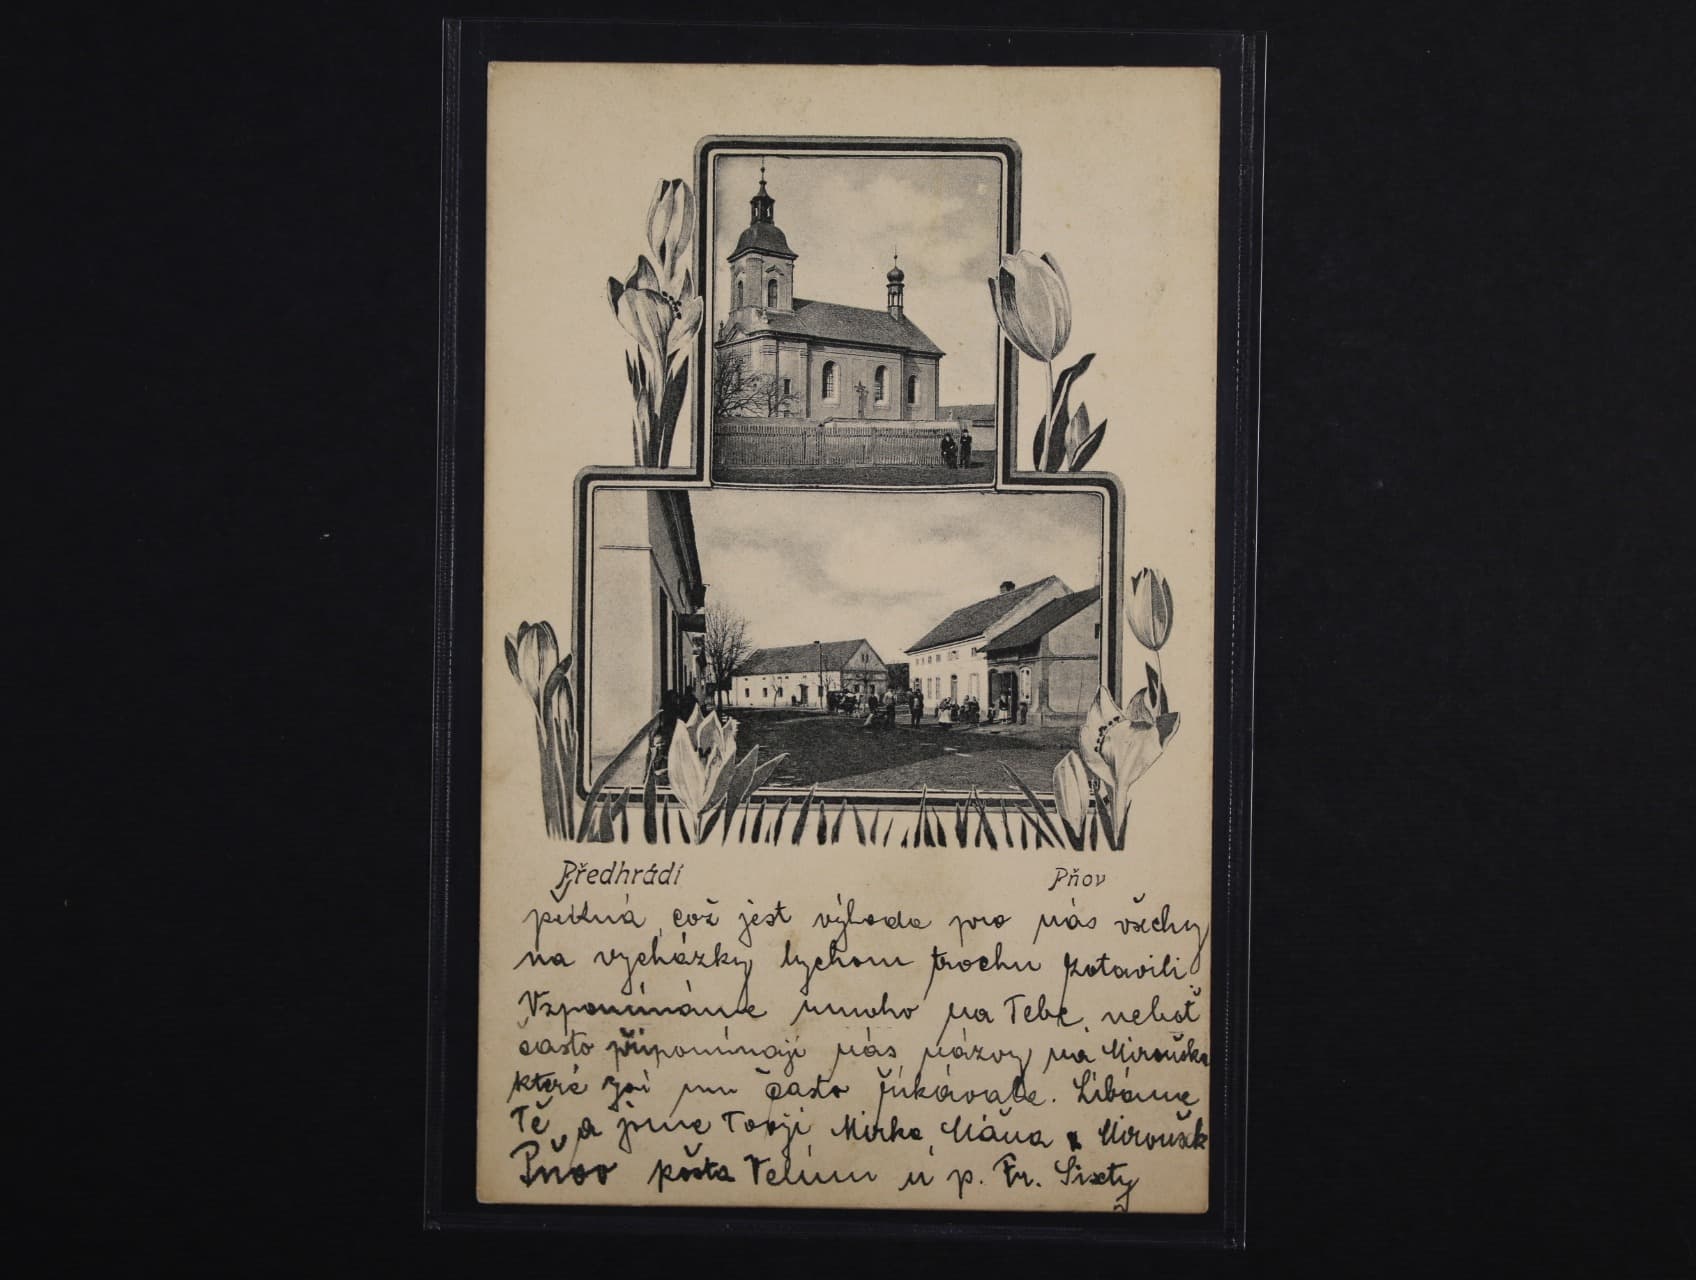 Předhrádí Pňov
pěkná, což jest výhoda pro nás všechny
na vycházky bychom trochu zotavili.
Vzpomínáme mnoho na Tebe, neboť
často připomínají nás názvy na Mirouška
které jsi mu často říkávala. Líbáme
Tě a jsme Tvoji Mirka, Máňa a Miroušek
Pňov pošta Velim u p. Fr.